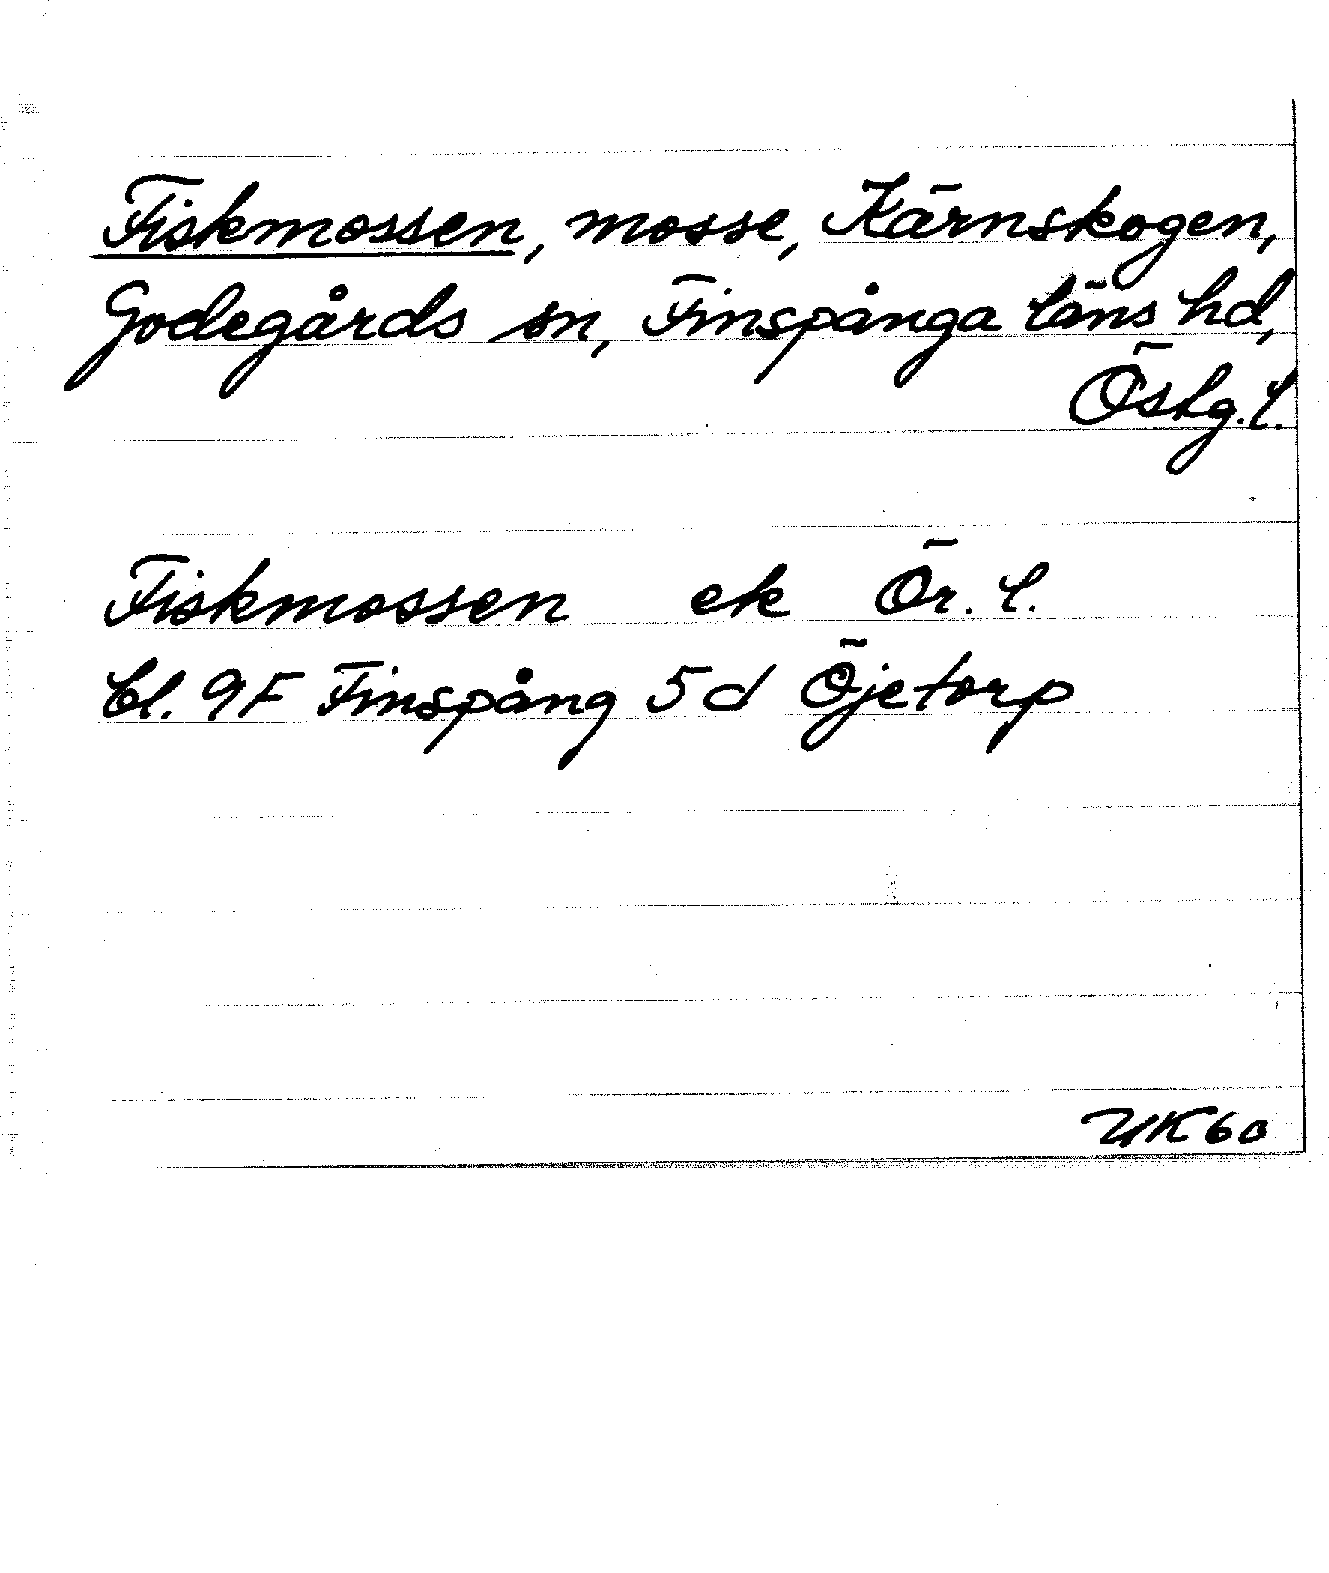 Fiskmossen, mosse, Kärnskogen,
Godegårds sn, Finspånga läns hd,
Östg. l.
Fiskmossen ek Ör. l.
bl. 9F Finspång 5 d Öjetorp
UK60